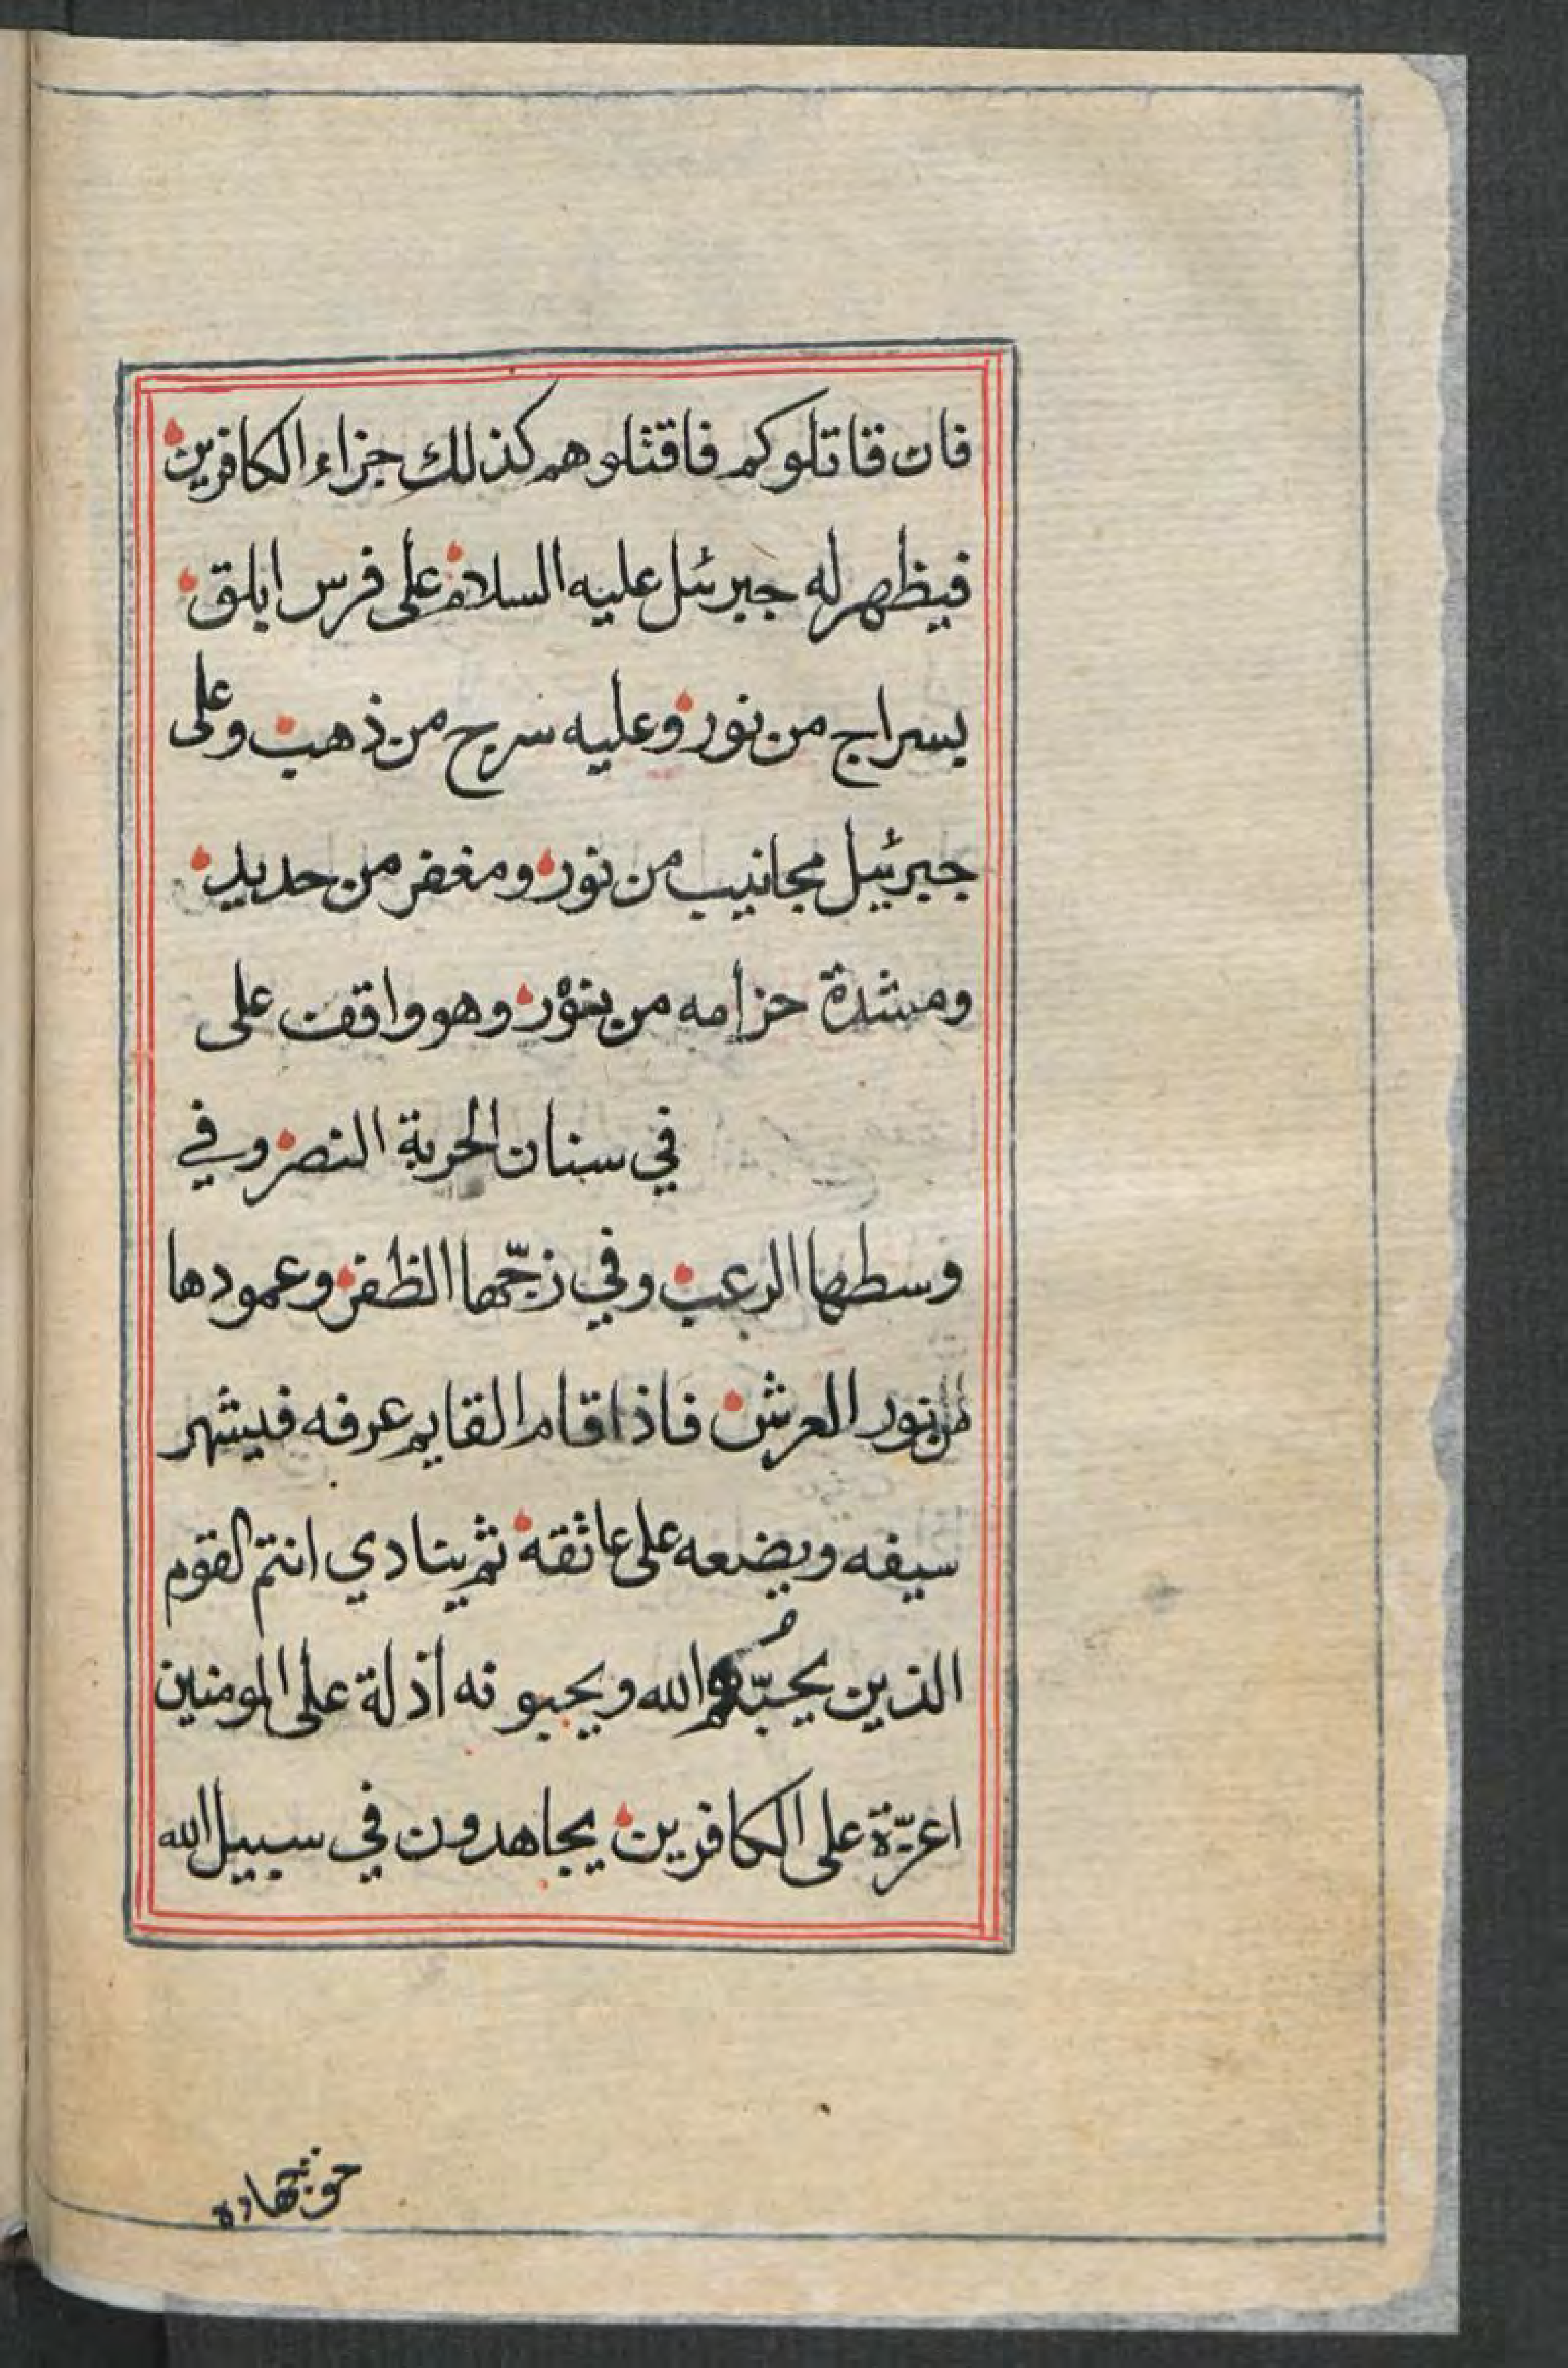 فان قاتلوكم فاقتلوهم كذلك جزاء الكافرين
فيظهر له جبرئل عليه السلام على فرس ابلق
بسراج من نور وعليه سرج من ذهب وعلى
جبرئيل مجانيب من نور ومغفر من حديد
ومشدة حزامه من نور وهو واقف على
في سنان الحربة النصر وفي
وسطها الرعب وفي زجّها الظفر وعمودها
من نور العرش فاذا قام القايم عرفه فيشهر
سيفه ويضعه على عاتقه ثم ينادي انتم القوم
الذين يحبّهم الله ويحبونه اذلة على المومنين
اعزّة على الكافرين يجاهدون في سبيل الله
حق جهاده